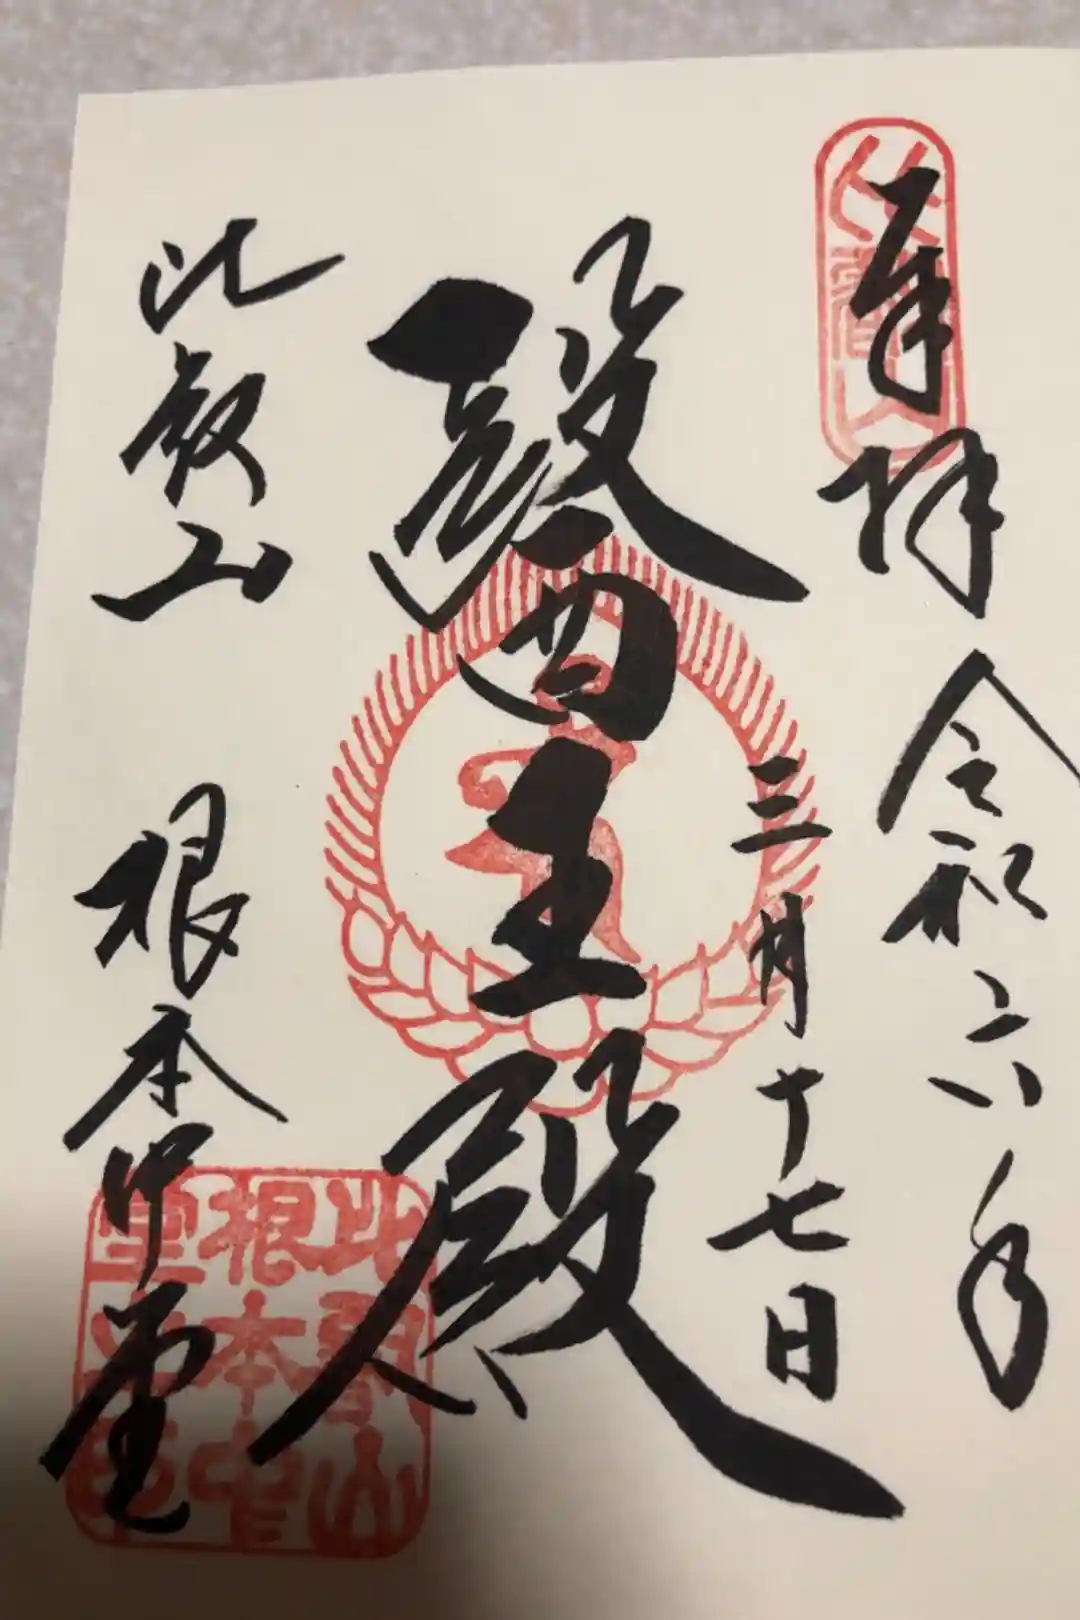 奉拝 令和六年
三月十七日
醫王殿
比叡山 根本中堂
比叡山
根本中
堂之印